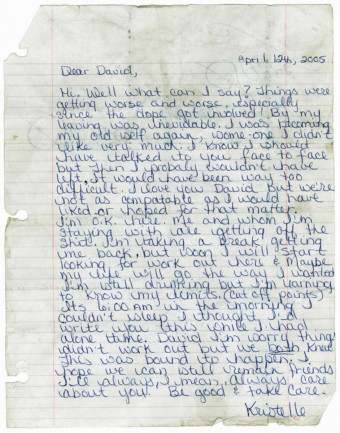 April 12th, 2005
Dear David,
Hi. Well what can I say? Things were
getting worse and worse, especially
since the dope got involved! But my
leaving was inevidable. I was becoming
my old self again, some one I didn't
like very much. I know I should
have talked to you face to face
but then I probaly wouldn't have
left, it would have been way too
difficult. I love you David but we're
not as compatable as I would have
liked or hoped for that matter.
I'm O.K. where me and whom I'm
staying with are getting off the
shit. I'm taking a break, getting
me back, but soon I will start
looking for work out there & maybe
my life will go the way I wanted
I'm still drinking but I'm learning
to know my limits. (cut off points)
Its 6:00am in the morning I
couldn't sleep & thought I'd
write you this while I had
alone time. David I'm sorry things
didn't work out but we both knew
this was bound to happen. I
hope we can still remain friends
I'll always, I mean, always, care
about you. Be good & take care.
Kristelle